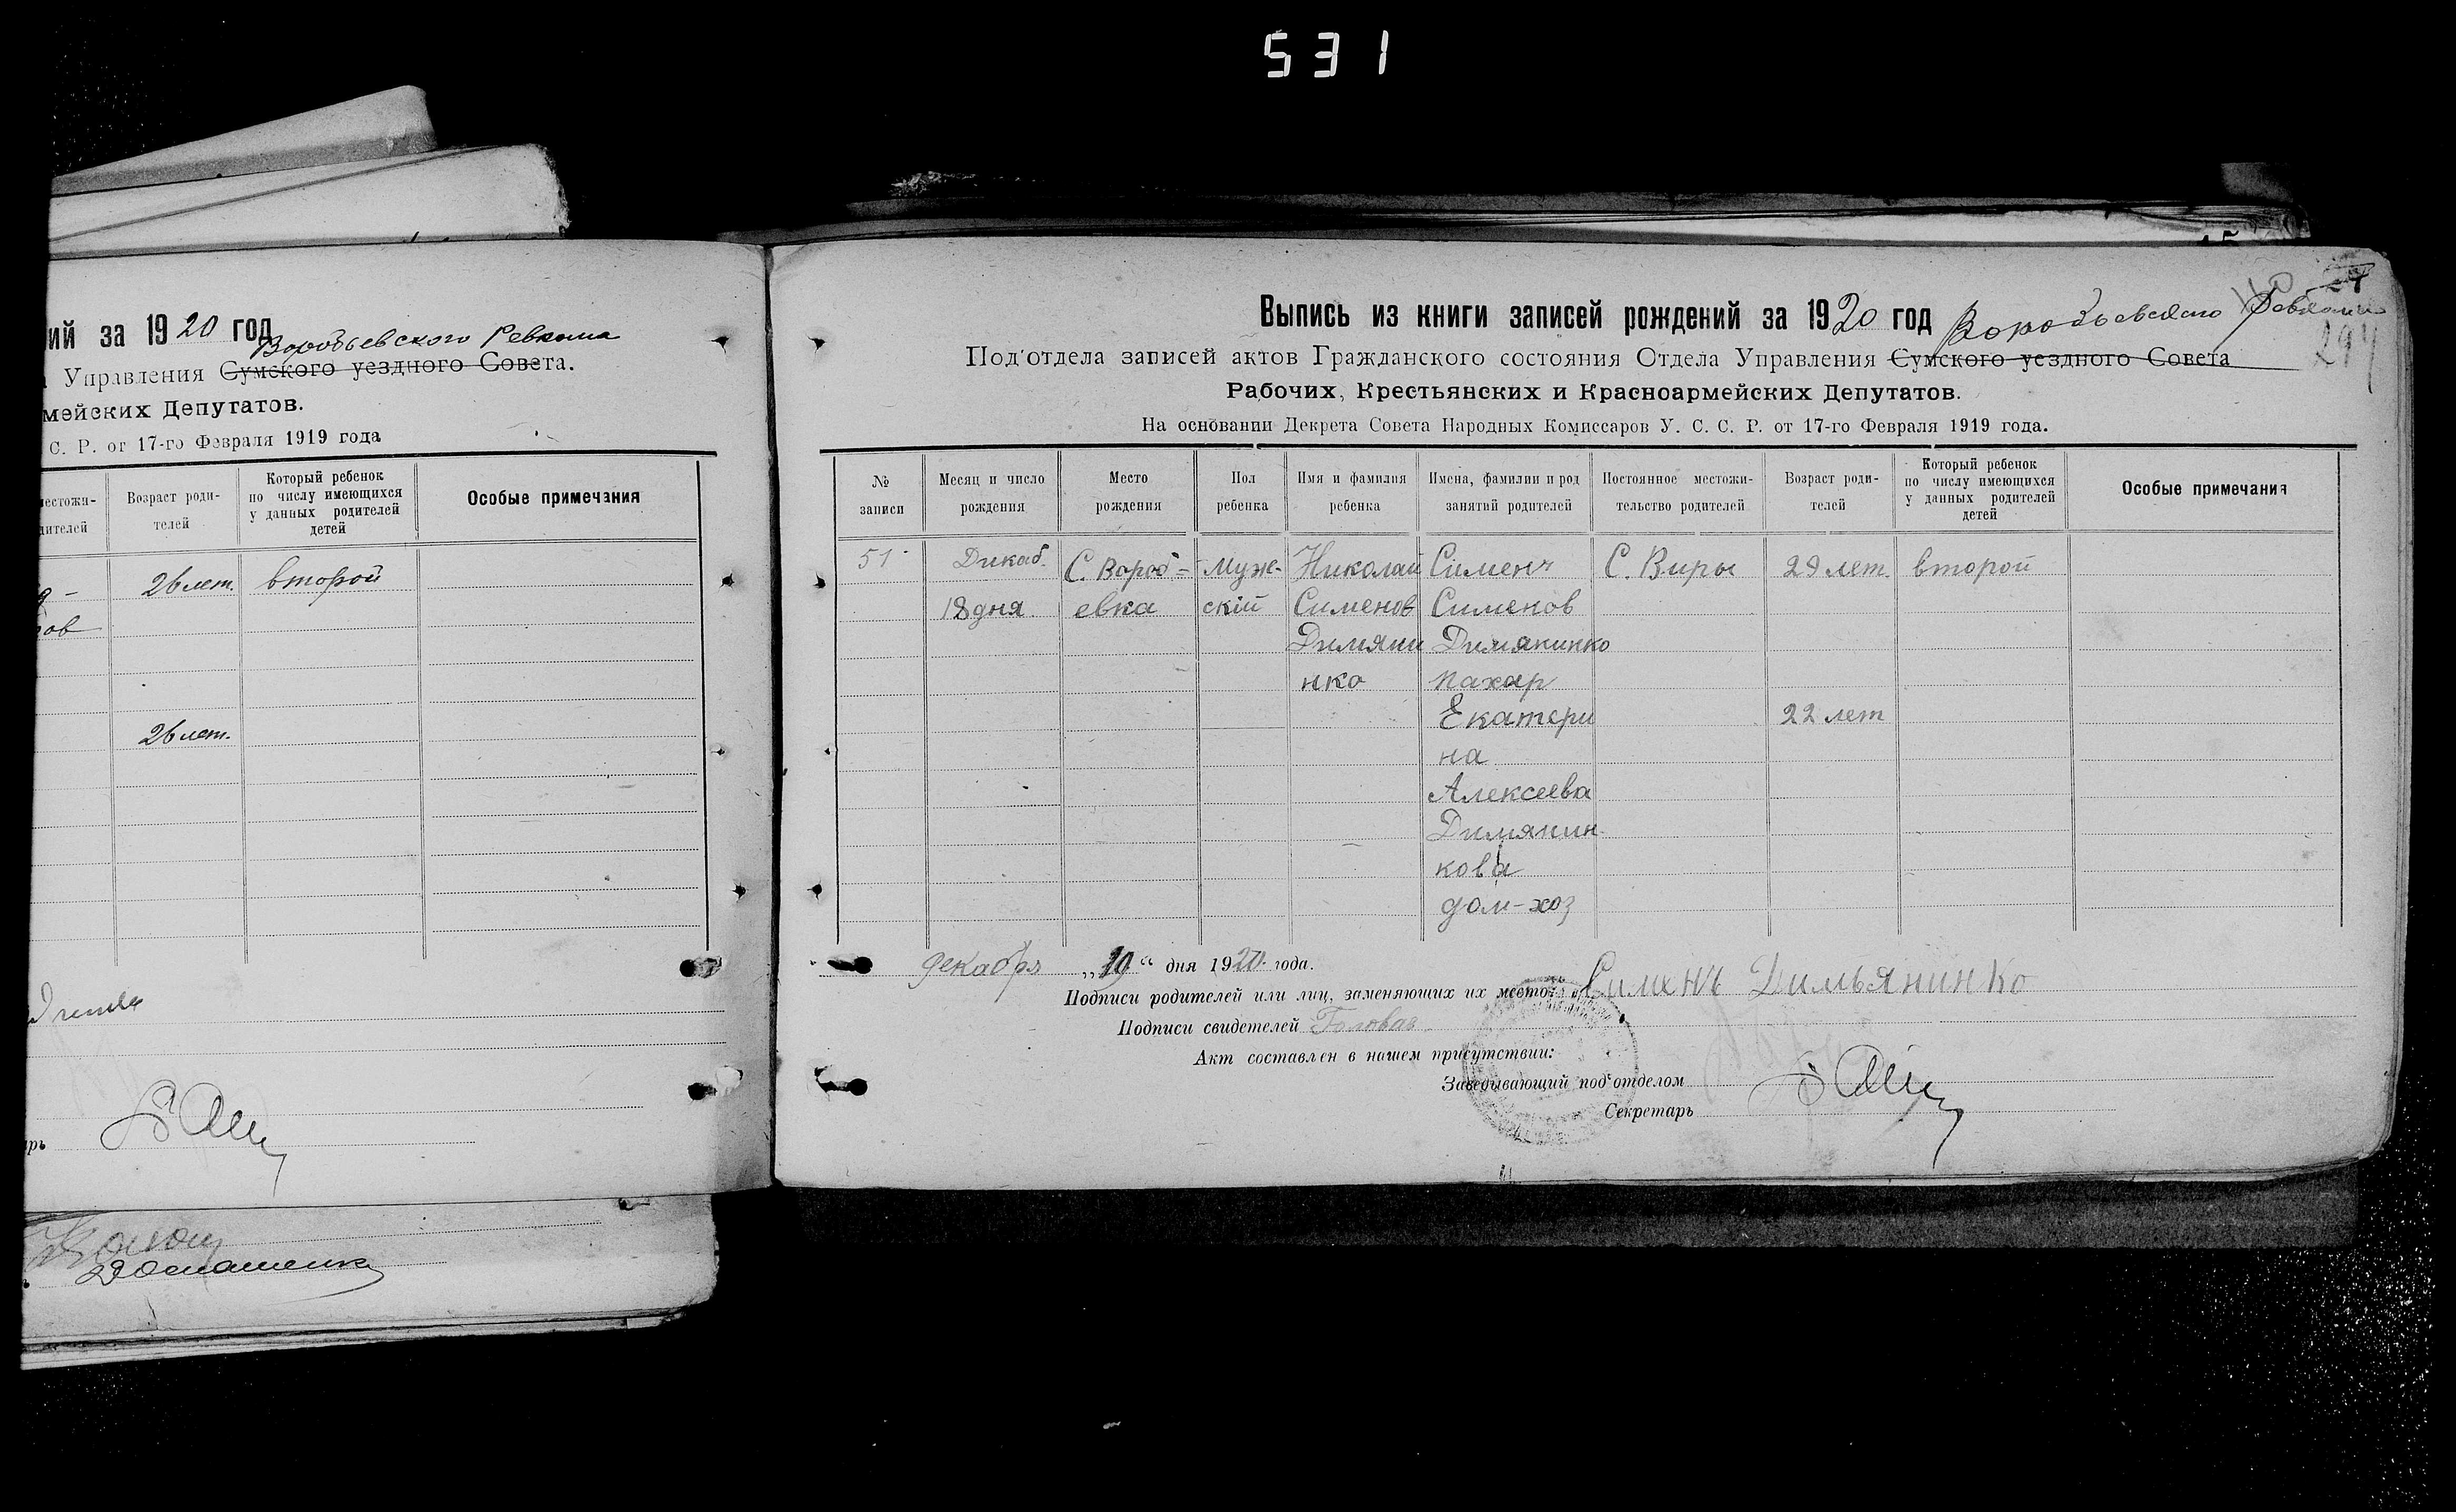 531
ий за 1920 год
Воробьевского Ревкома
Управления Сумского уездного Совета.
мейских Депутатов.
С. Р. от 17-го Февраля 1919 года
местожи-
дителей
Возраст роди-
телей
Который ребенок
по числу имеющихся
у данных родителей
детей
Особые примечания
26 лет. второй
ов
26 лет.
арь
Выпись из книги записей рождений за 1920 год Воробьевского Ревкома
294
Под'отдела записей актов Гражданского состояния Отдела Управления Сумского уездного Совета
Рабочих, Крестьянских и Красноармейских Депутатов.
На основании Декрета Совета Народных Комиссаров У. С. С. Р. от 17-го Февраля 1919 года.
№
записи
Месяц и число
рождения
Место
рождения
Пол
ребенка
Имя и фамилия
ребенка
Имена, фамилии и род
занятий родителей
Постоянное местожи-
тельство родителей
Возраст роди-
телей
Который ребенок
по числу имеющихся
у данных родителей
детей
Особые примечания
51 Дикаб. С. Вороб- Муже- Николай Сименъ С. Виры 29 лет. второй
18 дня евка скій Сименов Сименов
Димяни Димянинко
нко пахар
Екатери 22 лет
на
Алексеева
Димянин
кова
дом-хоз
декабря „19“ дня 1920 года.
Подписи родителей или лиц, заменяющих их место: Сименъ Димьянинко
Подписи свидетелей
Акт составлен в нашем присутствии:
Заведывающий под'отделом
Секретарь